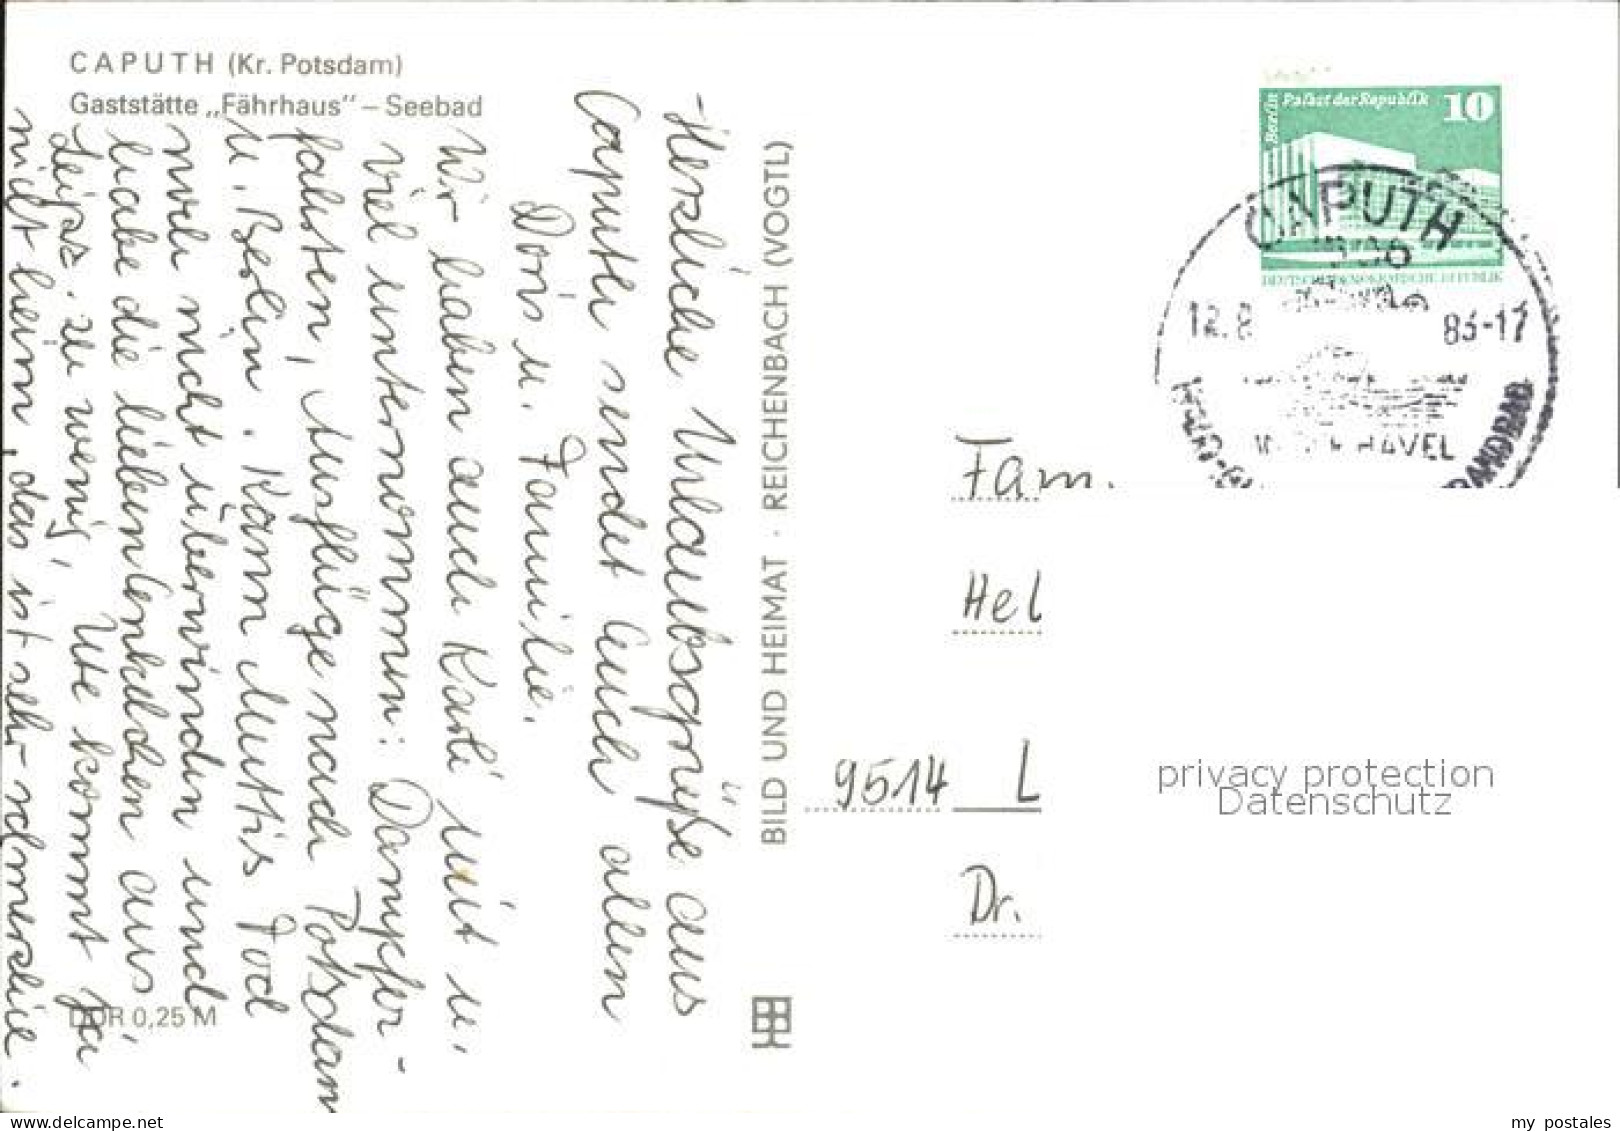 CAPUTH (Kr. Potsdam)
Gaststätte „Fährhaus" – Seebad
Herzliche Urlaubsgrüße aus
Caputh sendet Euch allen
Doris u. Familie.
Wir haben auch Karli mit u.
viel unternommen: Dampfer-
fahrten, Ausflüge nach Potsdam
u. Berlin. Kann Muttis Tod
noch nicht überwinden und
habe die lieben aus
Leipz. zu wenig, Ute kommt ja
nicht heim, das ist sehr schmerzlich.
DDR 0,25 M
BILD UND HEIMAT · REICHENBACH (VOGTL)
Berlin Palast der Republik 10
DEUTSCHE DEMOKRATISCHE REPUBLIK
CAPUTH
12.8 83-17
HAVEL
Fam.
Hel
9514 L
Dr.
privacy protection
Datenschutz
www.delcampe.net
my_postales